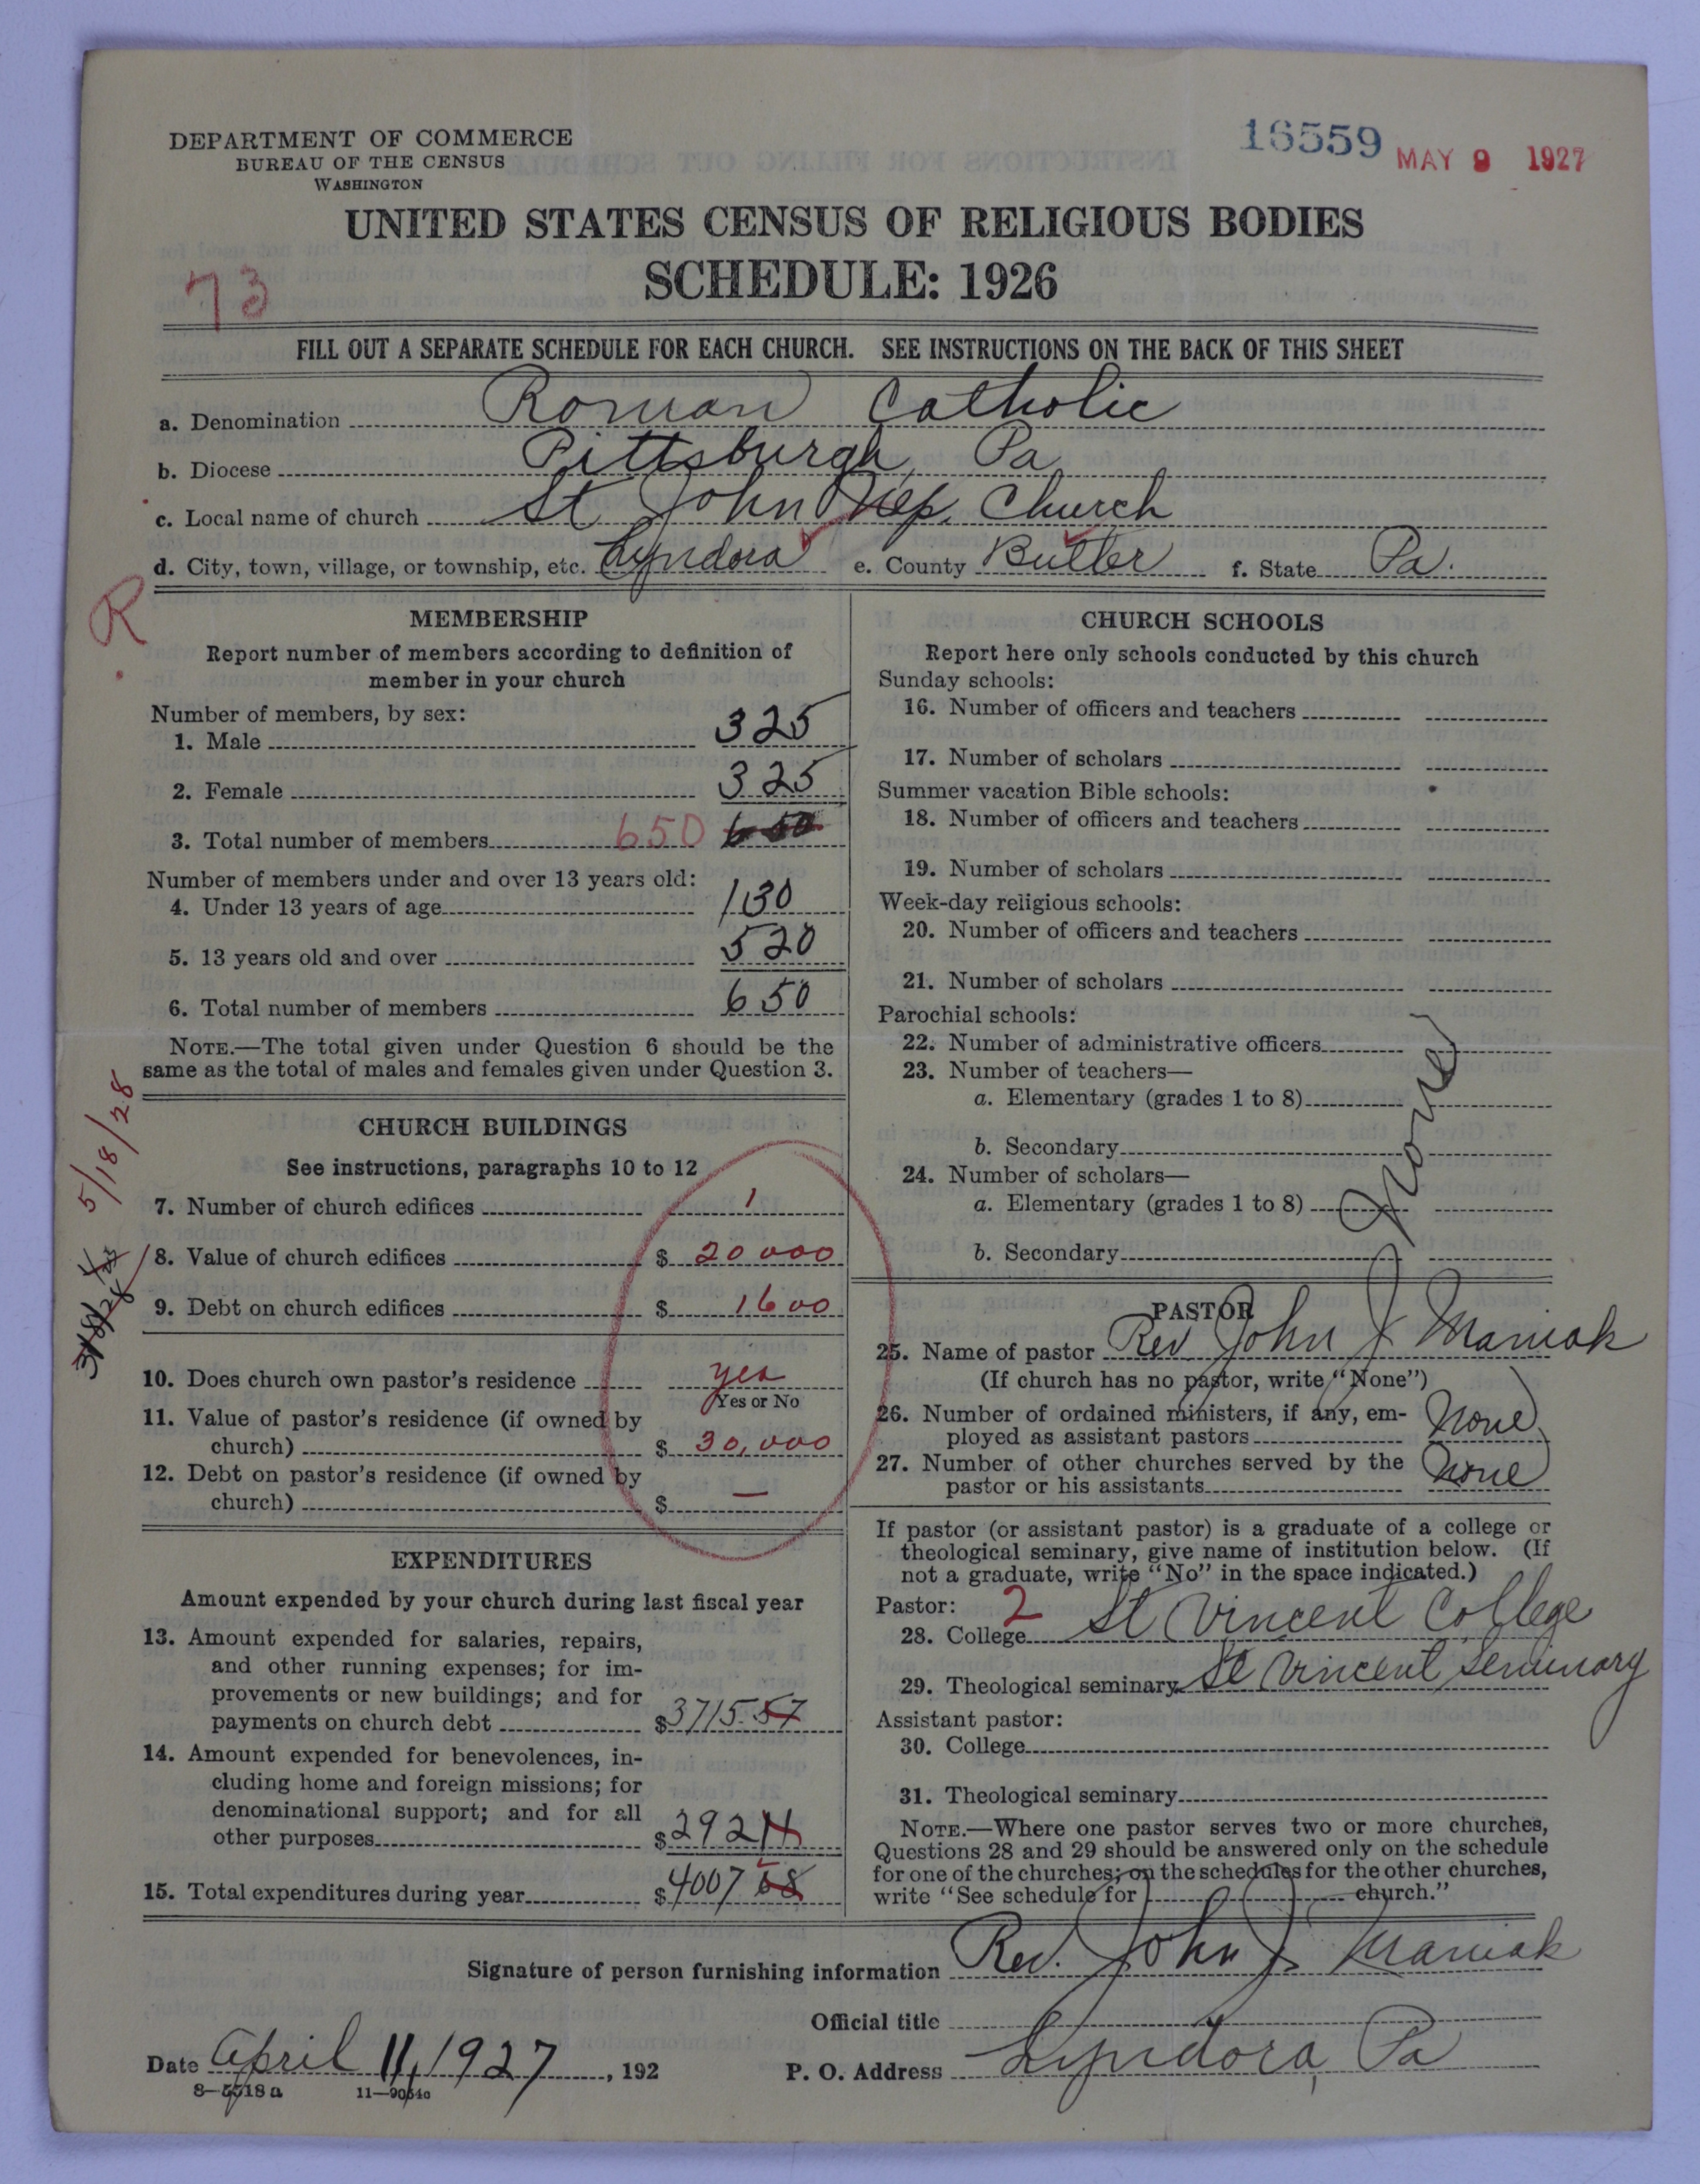 DEPARTMENT OF COMMERCE
BUREAU OF THE CENSUS
WASHINGTON
16559 MAY 9 1927
UNITED STATES CENSUS OF RELIGIOUS BODIES
SCHEDULE: 1926
73
FILL OUT A SEPARATE SCHEDULE FOR EACH CHURCH. SEE INSTRUCTIONS ON THE BACK OF THIS SHEET
a. Denomination Roman Catholic
b. Diocese Pittsburgh, Pa
c. Local name of church St John Nep. Church
d. City, town, village, or township, etc. Lyndora e. County Butler f. State Pa.
R
MEMBERSHIP
Report number of members according to definition of
member in your church
Number of members, by sex:
1. Male 325
2. Female 325
3. Total number of members 650 650
Number of members under and over 13 years old:
4. Under 13 years of age 130
5. 13 years old and over 520
6. Total number of members 650
NOTE.—The total given under Question 6 should be the
same as the total of males and females given under Question 3.
5/18/28
CHURCH BUILDINGS
See instructions, paragraphs 10 to 12
7. Number of church edifices 1
8. Value of church edifices $ 20000
9. Debt on church edifices $ 1600
10. Does church own pastor's residence yes
Yes or No
11. Value of pastor's residence (if owned by
church) $ 30,000
12. Debt on pastor's residence (if owned by
church) $ —
EXPENDITURES
Amount expended by your church during last fiscal year
13. Amount expended for salaries, repairs,
and other running expenses; for im-
provements or new buildings; and for
payments on church debt $3715.57
14. Amount expended for benevolences, in-
cluding home and foreign missions; for
denominational support; and for all
other purposes $292 11
15. Total expenditures during year $4007 68
CHURCH SCHOOLS
Report here only schools conducted by this church
Sunday schools:
16. Number of officers and teachers
17. Number of scholars
Summer vacation Bible schools:
18. Number of officers and teachers
19. Number of scholars
Week-day religious schools:
20. Number of officers and teachers
21. Number of scholars
Parochial schools:
22. Number of administrative officers
23. Number of teachers—
a. Elementary (grades 1 to 8)
b. Secondary
24. Number of scholars—
a. Elementary (grades 1 to 8)
b. Secondary
None
PASTOR
25. Name of pastor Rev John J Maniak
(If church has no pastor, write "None")
26. Number of ordained ministers, if any, em-
ployed as assistant pastors None
27. Number of other churches served by the
pastor or his assistants None
If pastor (or assistant pastor) is a graduate of a college or
theological seminary, give name of institution below. (If
not a graduate, write "No" in the space indicated.)
Pastor: 2
28. College St Vincent College
29. Theological seminary St Vincent Seminary
Assistant pastor:
30. College
31. Theological seminary
NOTE.—Where one pastor serves two or more churches,
Questions 28 and 29 should be answered only on the schedule
for one of the churches; on the schedules for the other churches,
write "See schedule for church."
Signature of person furnishing information Rev. John J. Maniak
Official title
Date April 11, 1927, 192 P. O. Address Lyndora, Pa
8—5518a 11—9054a